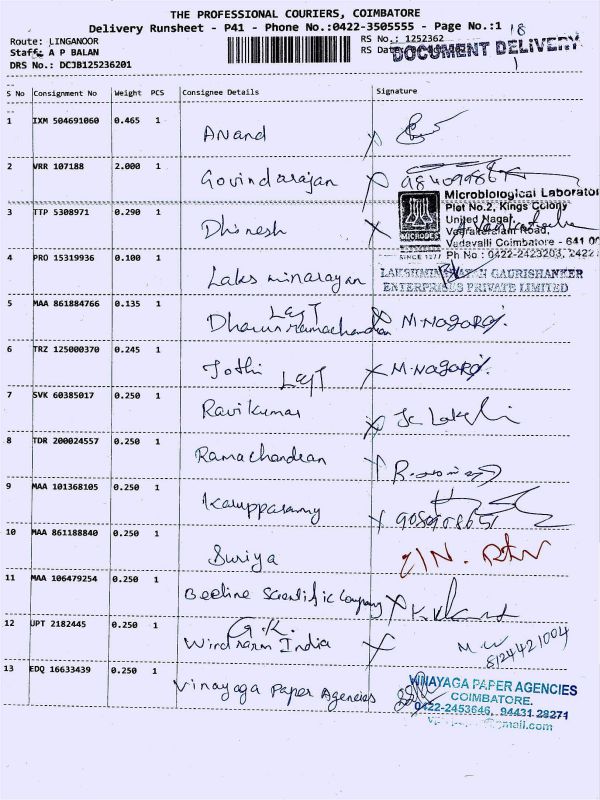 THE PROFESSIONAL COURIERS, COIMBATORE
Delivery Runsheet - P41 - Phone No.:0422-3505555 - Page No.:1 18
Route: LINGANOOR
RS No.: 1252362
Staff: A P BALAN
RS Date
DOCUMENT DELIVERY
DRS No.: DCJB125236201
1
S No Consignment No Weight PCS Consignee Details Signature
1 IXM 504691060 0.465 1 Anand X
2 VRR 107188 2.000 1 Govindarajan X
Microbiological Laborator
Plot No.2, Kings Colony
3 TTP 5308971 0.290 1 Dhinesh X
United Nagar,
MICROBES
Vadavalli Coimbatore - 641 0
SINCE 1977 Ph No : 0422-2423203, 2422
4 PRO 15319936 0.100 1 Laksminarayan
GAURISHANKER
ENTERPRISES PRIVATE LIMITED
5 MAA 861884766 0.135 1 Dharun Ramachandran X M. Nagaraj.
6 TRZ 125000370 0.245 1 Jothi X M. Nagaraj.
7 SVK 60385017 0.250 1 Ravi Kumar X
8 TDR 200024557 0.250 1 Ramachandran X
9 MAA 101368105 0.250 1 Karuppasamy X
10 MAA 861188840 0.250 1 Suriya
11 MAA 106479254 0.250 1 Beeline Scientific Company X
12 UPT 2182445 0.250 1 G.K. Windfarm India X M. W
8124421004
13 EDQ 16633439 0.250 1 Vinayaga Paper Agencies
VINAYAGA PAPER AGENCIES
COIMBATORE.
0422-2453646, 94431 28271